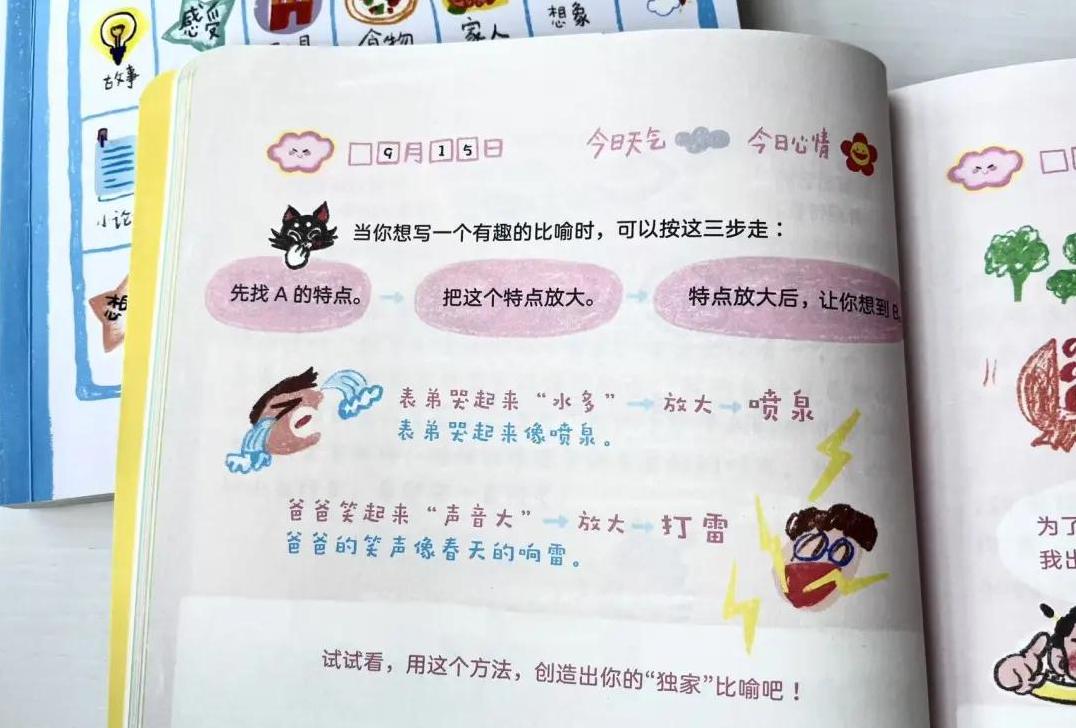 感受
食物
家人
想象
故事
小论
想
9月15日 今日天气 今日心情
当你想写一个有趣的比喻时，可以按这三步走：
先找 A 的特点。 → 把这个特点放大。 → 特点放大后，让你想到 B
表弟哭起来“水多” → 放大 → 喷泉
表弟哭起来像喷泉。
爸爸笑起来“声音大” → 放大 → 打雷
爸爸的笑声像春天的响雷。
试试看，用这个方法，创造出你的“独家”比喻吧！
为了
我出